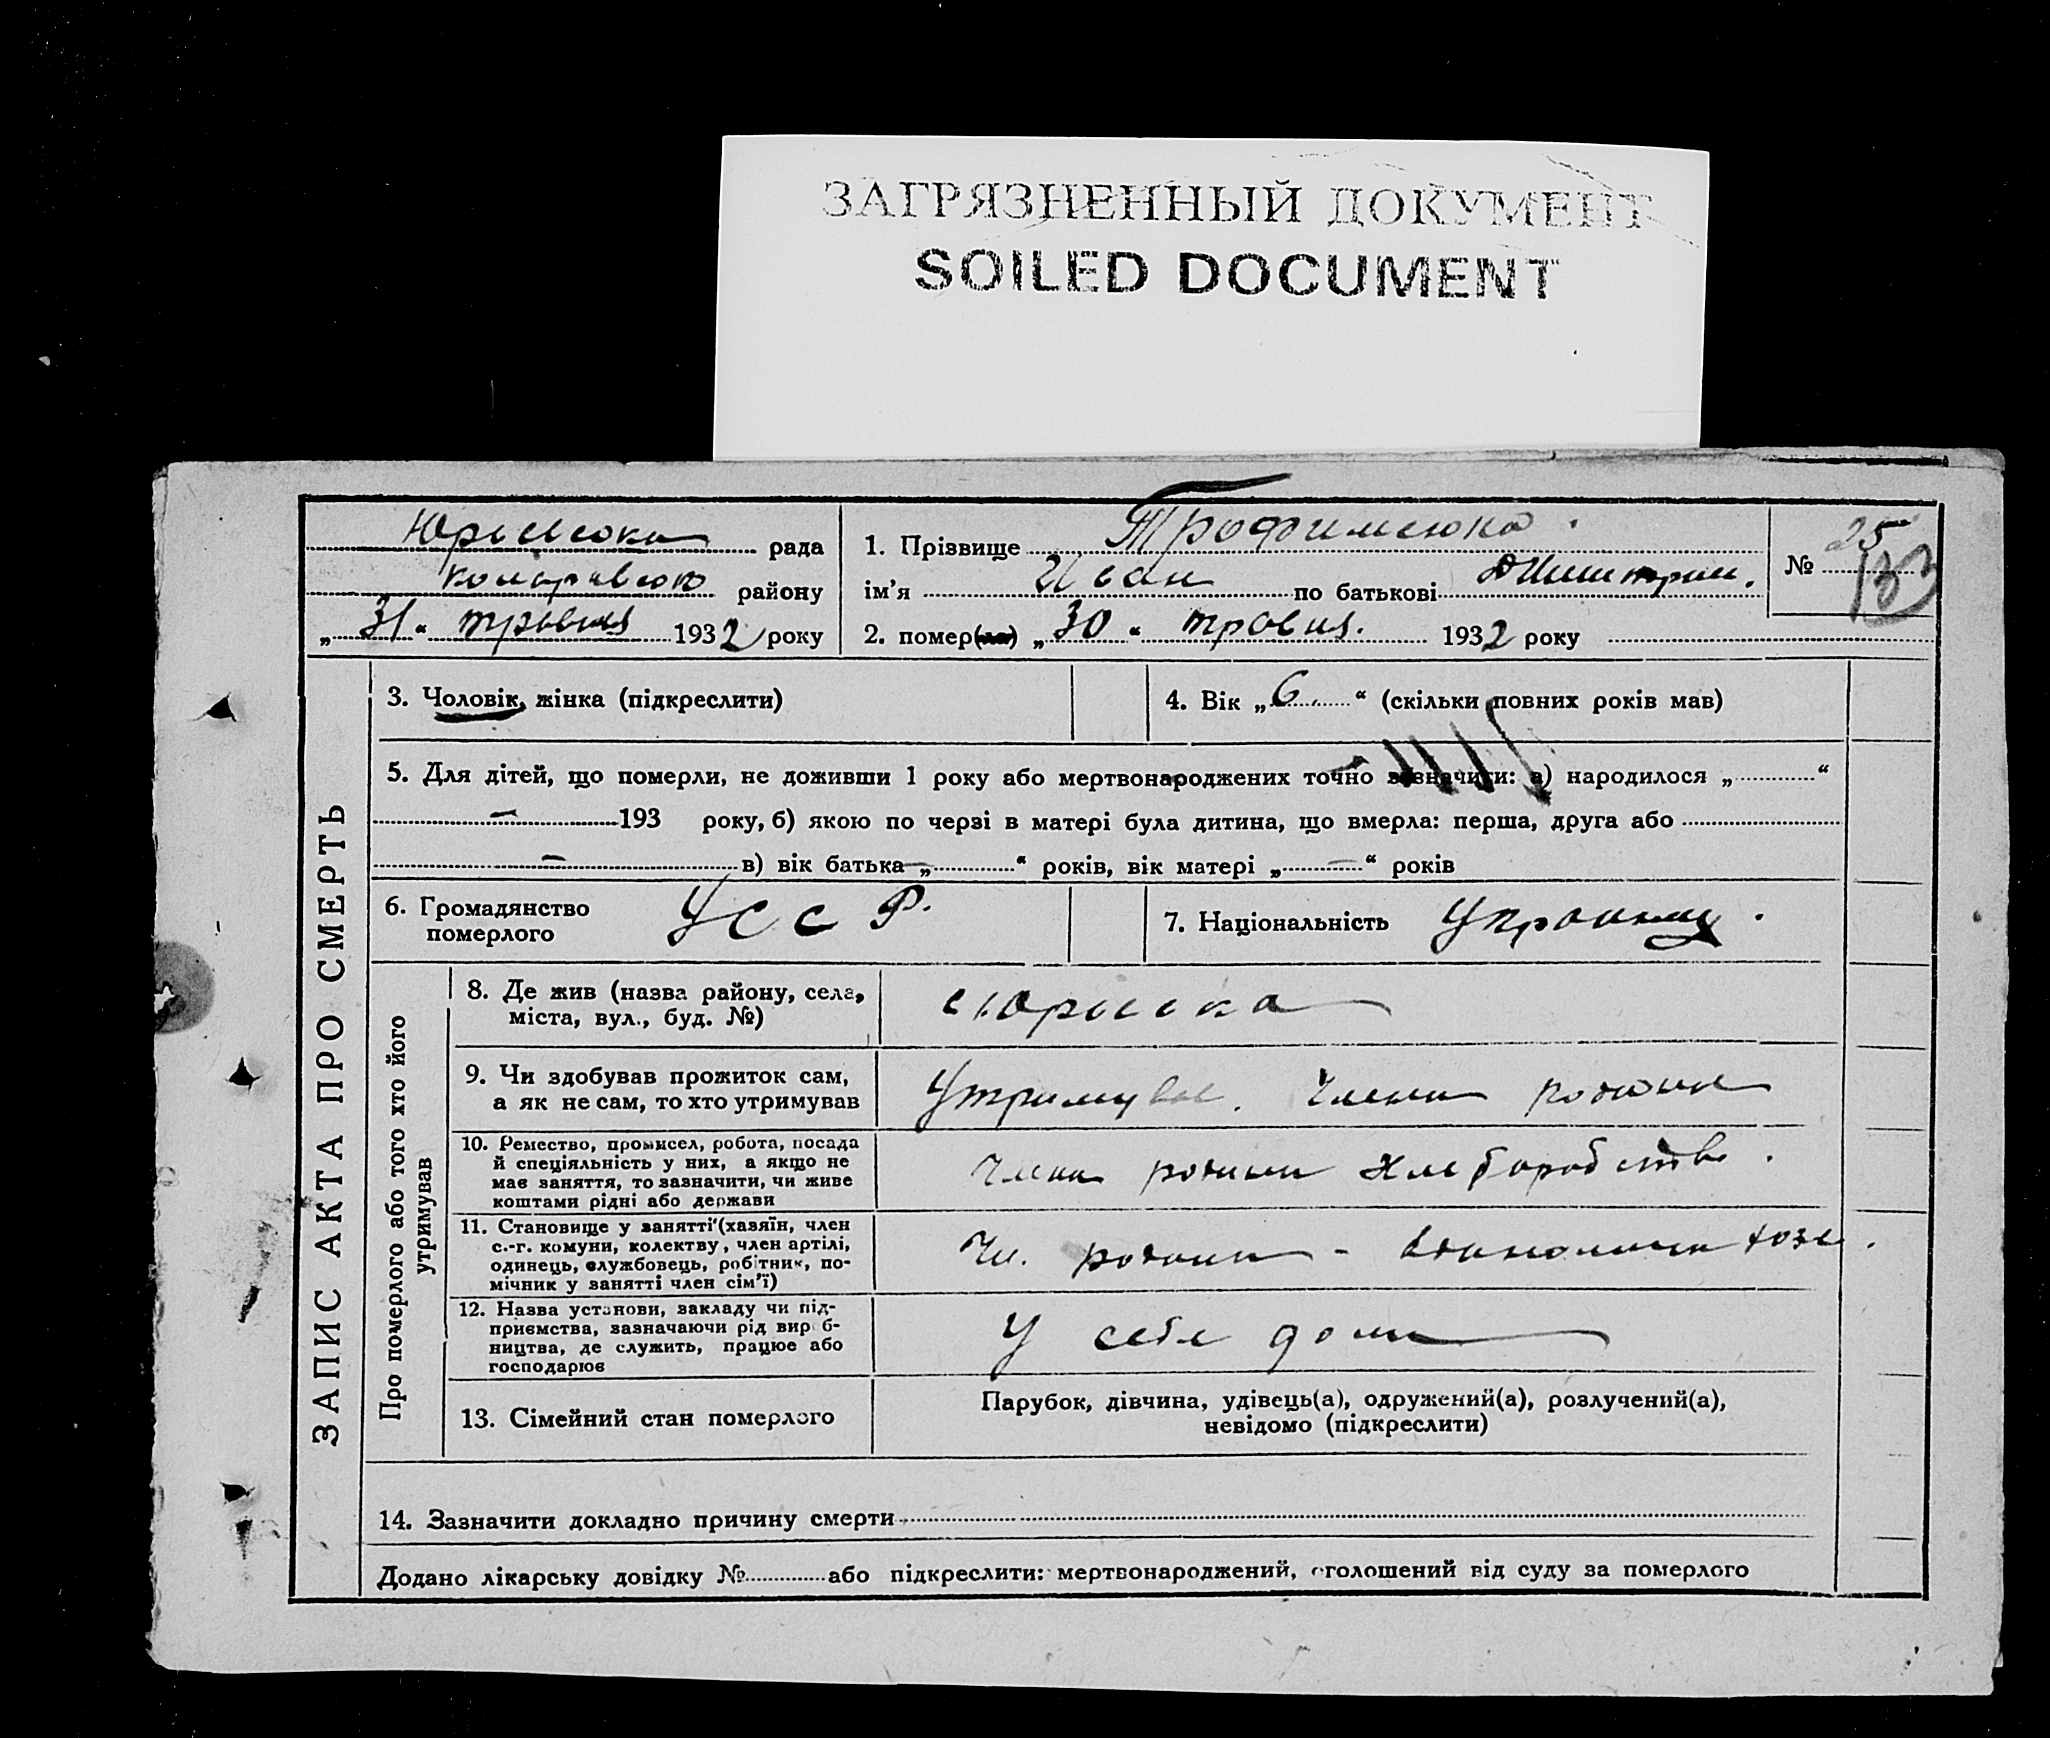 ЗАГРЯЗНЕННЫЙ ДОКУМЕНТ
SOILED DOCUMENT
рада
району
„ 31 “ травня 1932 року
1. Прізвище
ім’я Иван по батькові
2. помер(ла) „ 30 “ травня. 1932 року
№ 25
133
ЗАПИС АКТА ПРО СМЕРТЬ
3. Чоловік, жінка (підкреслити)
4. Вік „ 6 “ (скільки повних років мав)
5. Для дітей, що померли, не доживши 1 року або мертвонароджених точно зазначити: а) народилося „ “
– 193 року, б) якою по черзі в матері була дитина, що вмерла: перша, друга або
– в) вік батька – „ “ років, вік матері „ – “ років
6. Громадянство
померлого
УССР.
7. Національність
Про померлого або того хто його
утримував
8. Де жив (назва району, села,
міста, вул., буд. №)
9. Чи здобував прожиток сам,
а як не сам, то хто утримував
Члени родини
10. Ремество, промисел, робота, посада
й спеціяльність у них, а якщо не
має заняття, то зазначити, чи живе
коштами рідні або держави
Член родини
11. Становище у занятті (хазяїн, член
с.-г. комуни, колектву, член артілі,
одинець, службовець, робітник, по-
мічник у занятті член сім’ї)
Чл. родини -
12. Назва установи, закладу чи під-
приємства, зазначаючи рід вироб-
ництва, де служить, працює або
господарює
У себе дома
13. Сімейний стан померлого
Парубок, дівчина, удівець(а), одружений(а), розлучений(а),
невідомо (підкреслити)
14. Зазначити докладно причину смерти
Додано лікарську довідку № або підкреслити: мертвонароджений, оголошений від суду за померлого